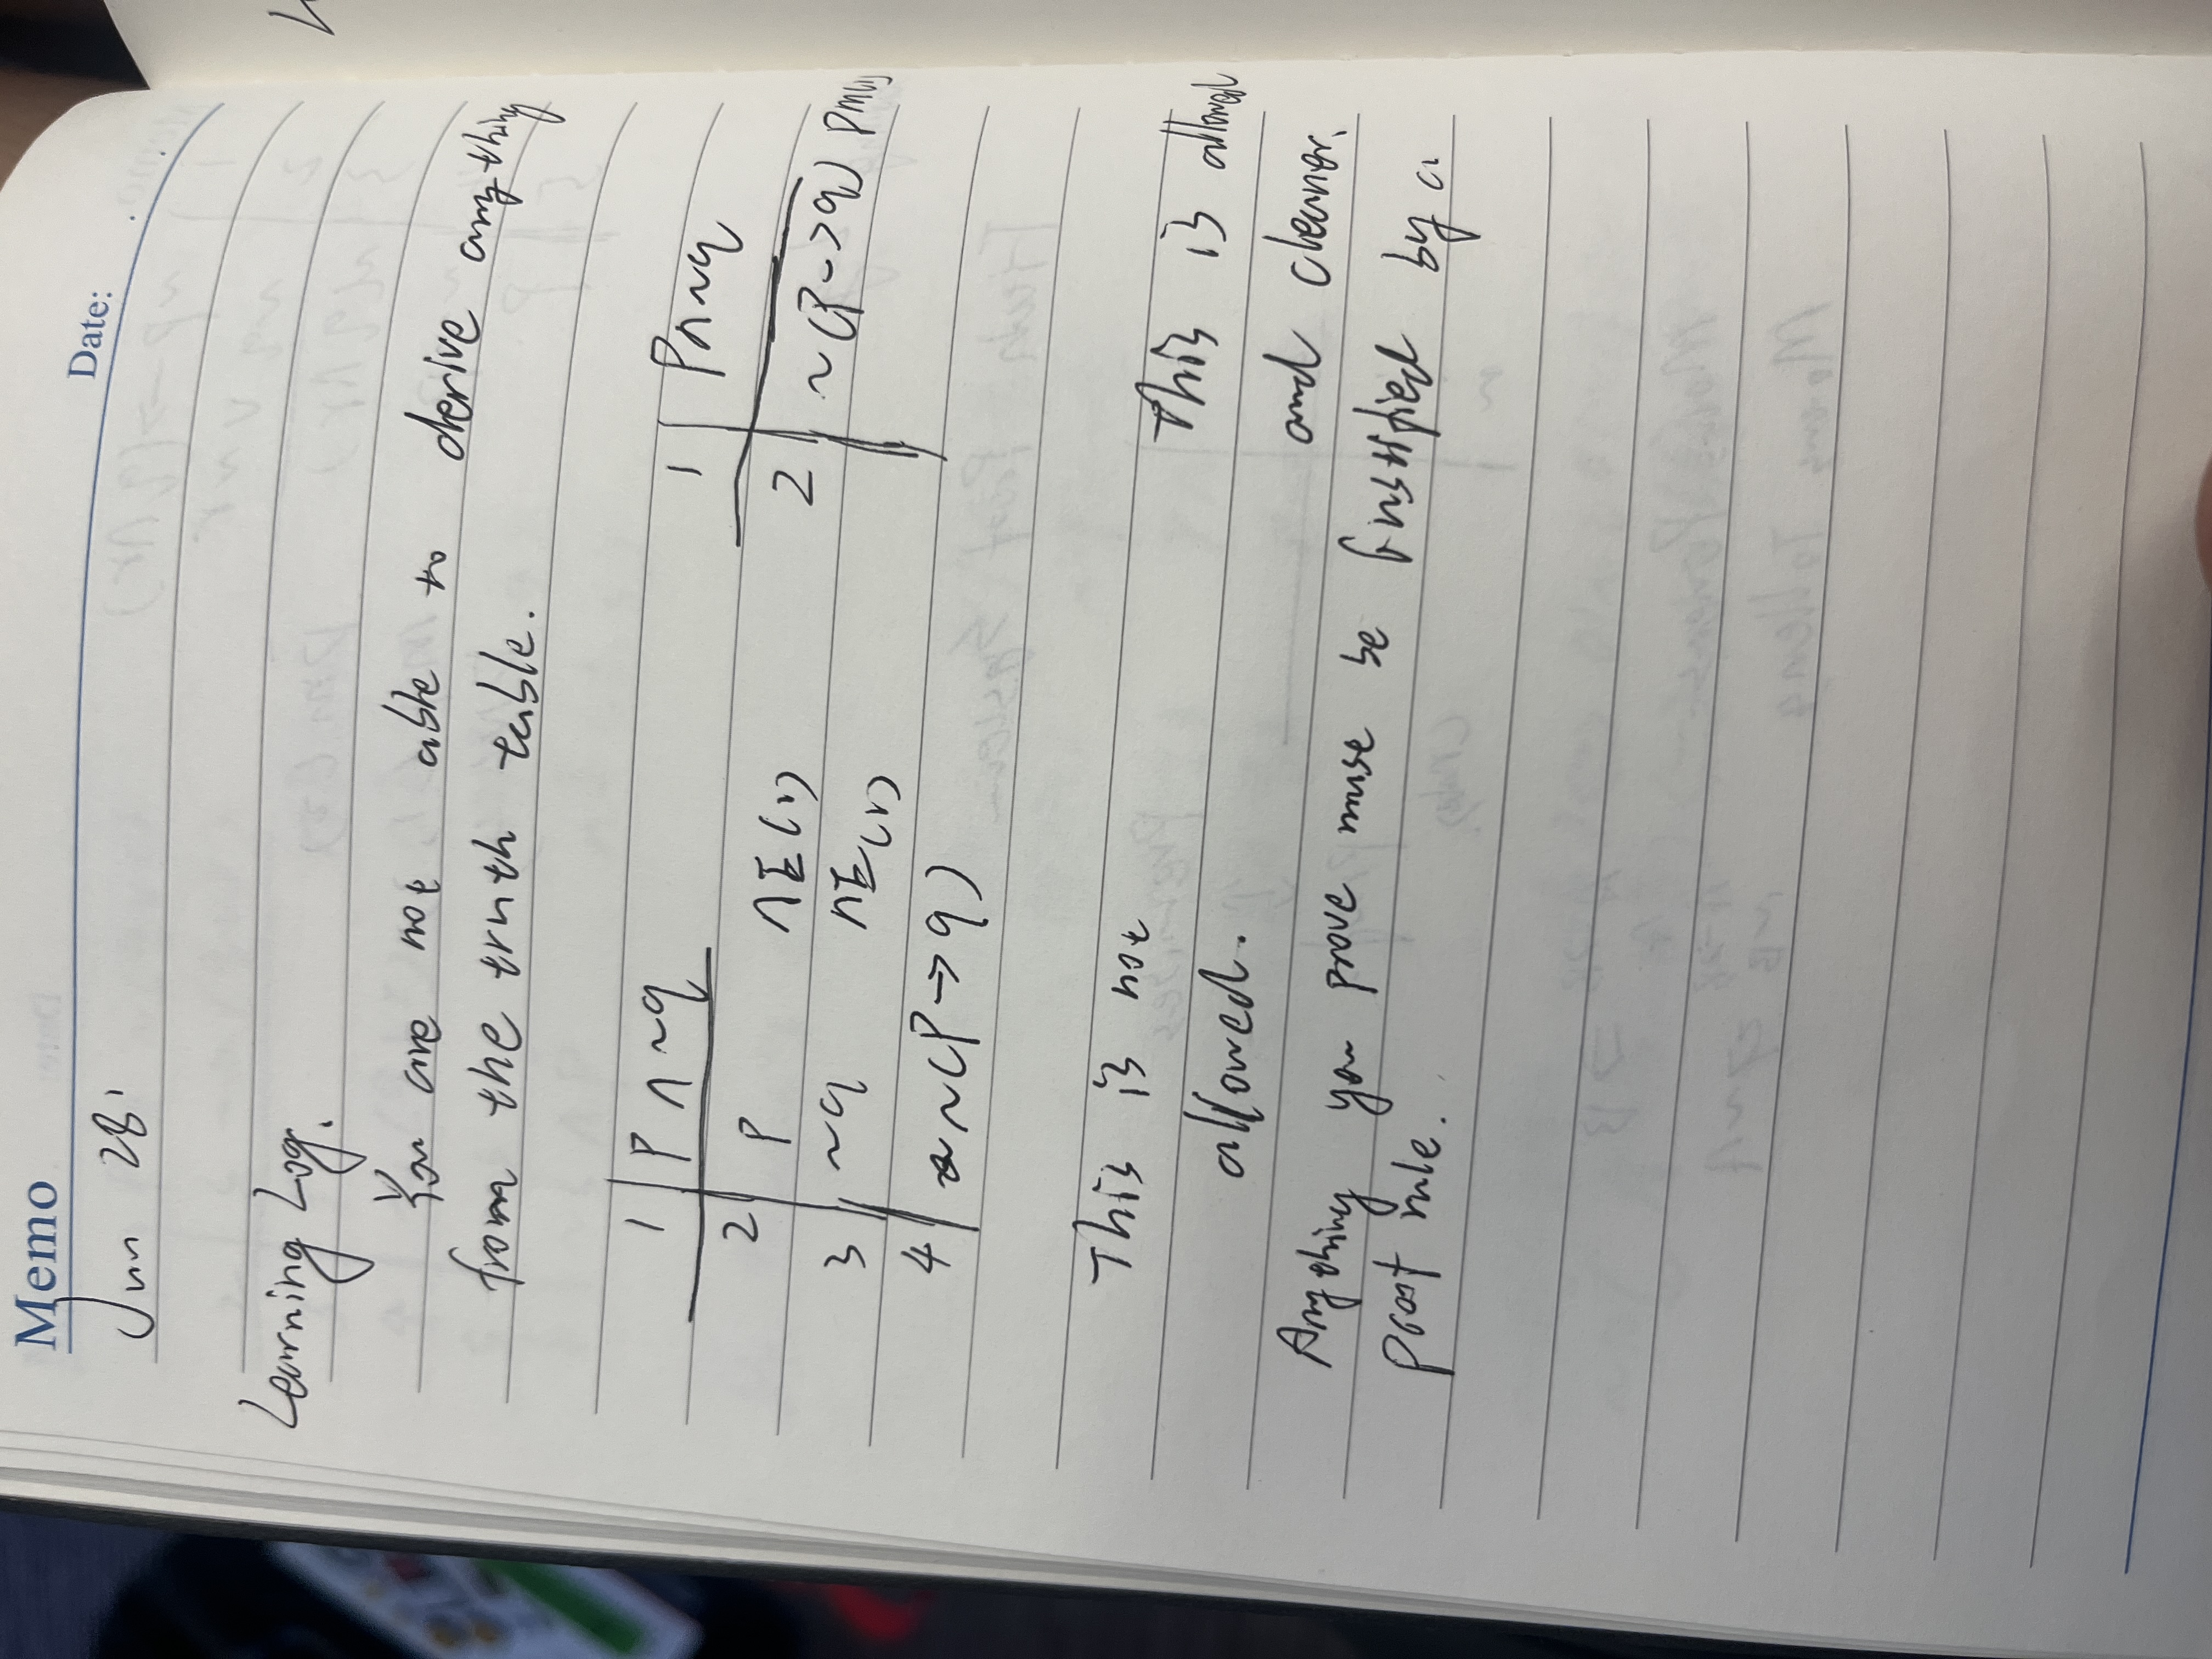 Memo
Date:
Jun 28'
Learning Log.
You are not able to derive anything
from the truth table.
1 P ∧ ~q
2 P ∧E(1)
3 ~q ∧E(1)
4 ~(P → q)
1 P∧~q
2 ~(P->q) DM(1)
This is not
allowed.
This is allowed
and cleaner.
Anything you prove must be justified by a
proof rule.